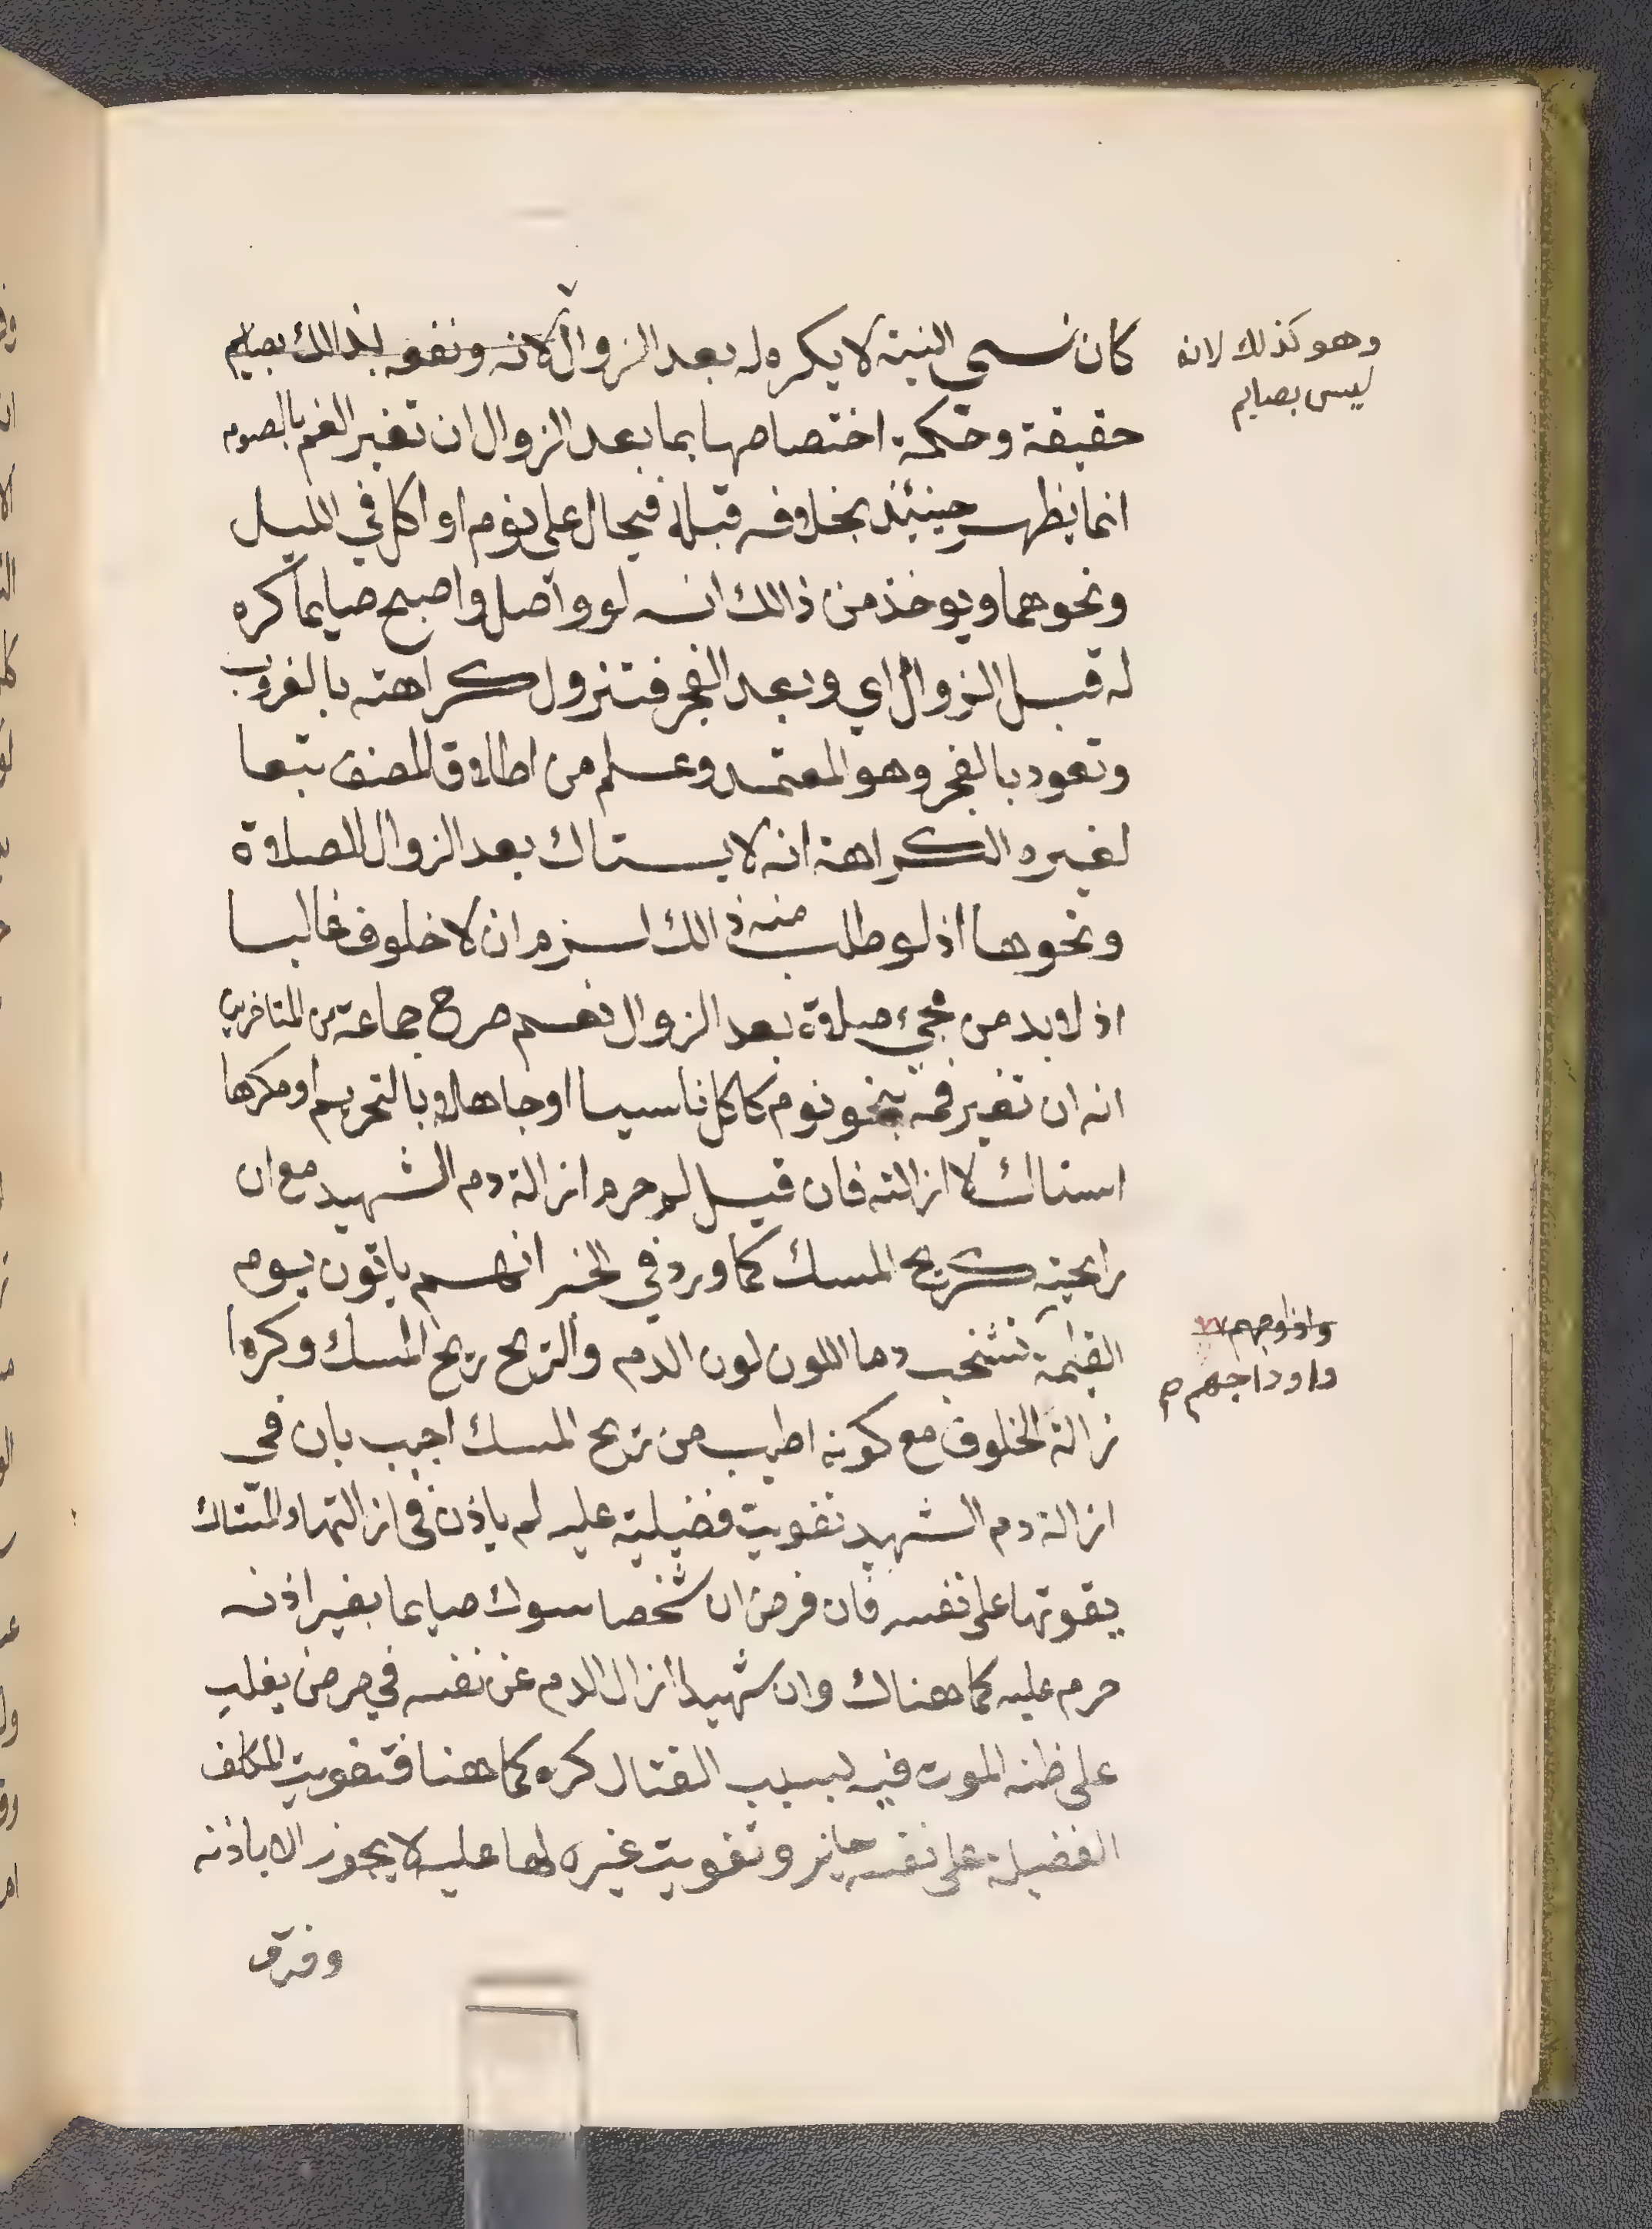 كان نسي النية لا يكره له بعد الزوال لانه ونفعه بذالك بصايم
وهو كذلك لانه
ليس بصايم
حقيقة وحكمة اختصاصها بما بعد الزوال ان تغير الفم بالصوم
انما يظهر حينئذ بخلافه قبله فيحال على نوم او اكل في الليل
ونحوهما ويوخذ من ذالك انه لو واصل واصبح صايما كره
له قبل الزوال اي وبعد الفجر فتزول كراهته بالغروب
وتعود بالفجر وهو المعتمد وعلم من اطلاق المصنف تبعا
لغيره الكراهة انه لا يستاك بعد الزوال للصلاة
ونحوها اذ لو طلب منه ذالك لزم ان لا خلوف غالبا
اذ لابد من مجيء صلاة بعد الزوال نعم صرح جماعة من المتاخرين
انه ان تغير فمه بنحو نوم كاكل ناسيا او جاهلا بالتحريم او مكرها
استاك لا ازالته فان قيل لم حرم ازالة دم الشهيد مع ان
رايحته كريح المسك كما ورد في الخبر انهم ياتون يوم
القيمة تشخب دما اللون لون الدم والريح ريح المسك وكره ا
واذاوجهم
واوداجهم صح
زالة الخلوف مع كونه اطيب من ريح المسك اجيب بان في
ازالة دم الشهيد تفويت فضيلة عليه لم ياذن في ازالتها والمستاك
يفوتها على نفسه فان فرض ان شخصا سوك صايما بغير اذنه
حرم عليه كما هناك وان شهيدا ازال الدم عن نفسه في مرض يغلب
على ظنه الموت فيه بسبب القتال كره كما هنا فتفويت المكلف
الفضيلة على نفسه جايز وتفويت غيره لها عليه لا يجوز الا باذنه
وفرق